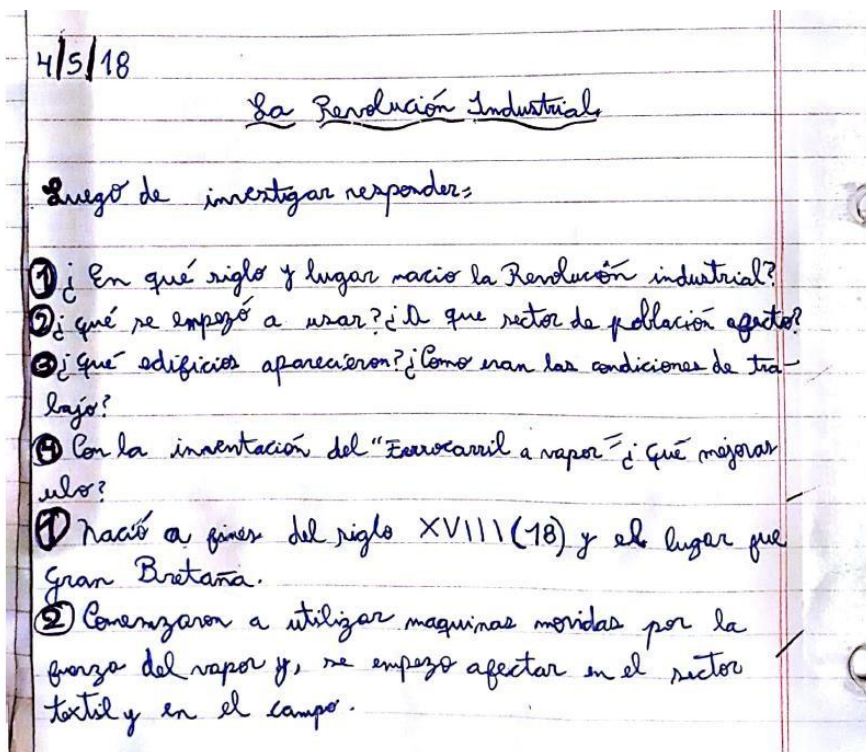 4/5/18
La Revolución Industrial.
Luego de investigar responder:
① ¿En qué siglo y lugar nacio la Revolución industrial?
② ¿qué se empezó a usar? ¿A que sector de población afecto?
③ ¿Qué edificios aparecieron? ¿Como eran las condiciones de tra-
bajo?
④ Con la inventación del "Ferrocarril a vapor" ¿Qué mejoras
ubo?
① nació a fines del siglo XVIII (18) y el lugar fue
Gran Bretaña.
② Comenzaron a utilizar maquinas movidas por la
fuerza del vapor y, se empezo afectar en el sector
textil y en el campo.